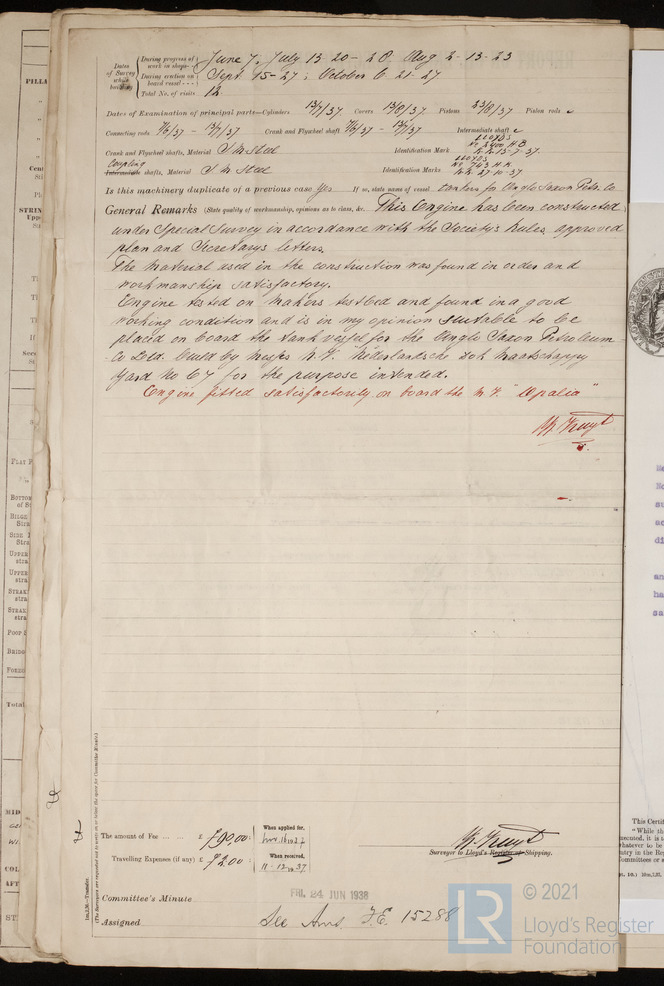 Dates of Survey while building
During progress of work in shops - - June 7, July 13-20-28, Aug 2-13-23
During erection on board vessel - - - Sept. 15-27; October 6-21-27
Total No. of visits 12.
Dates of Examination of principal parts—Cylinders 13/7/37. Covers 13/8/37. Pistons 23/8/37 Piston rods
Connecting rods 7/6/37 - 13/7/37 Crank and Flywheel shaft 7/6/37 - 13/7/37 Intermediate shaft
Crank and Flywheel shafts, Material S M Steel Identification Mark LLOYDS No 5400 H.B 13-7-37.
Coupling
Intermediate shafts, Material S M Steel Identification Marks LLOYDS No 763 H.K. 27-10-37
Is this machinery duplicate of a previous case Yes If so, state name of vessel tankers for Anglo Saxon Petr. Co
General Remarks (State quality of workmanship, opinions as to class, &c. This Engine has been constructed
under Special Survey in accordance with the Society's Rules, approved
plan and Secretarys letters.
The material used in the construction was found in order and
workmanship satisfactory.
Engine tested on makers testbed and found in a good
working condition and is in my opinion suitable to be
placed on board the tank vessel for the Anglo Saxon Petroleum
Co Ltd. build by Messrs N.V. Nederlandsche Dok Maatschappy
Yard No 67 for the purpose intended.
Engine fitted satisfactorily on board the M.V. "Opalia"
The amount of Fee ... ... £ 90.00: When applied for,
Travelling Expenses (if any) £ 2.00: When received, 11-12-1937
Surveyor to Lloyd's Register of Shipping.
Committee's Minute FRI. 24 JUN 1938
Assigned See Ams. F.E. 15288
(The Surveyors are requested not to write on or below the space for Committee's Minute.)
© 2021
LR Lloyd's Register
Foundation